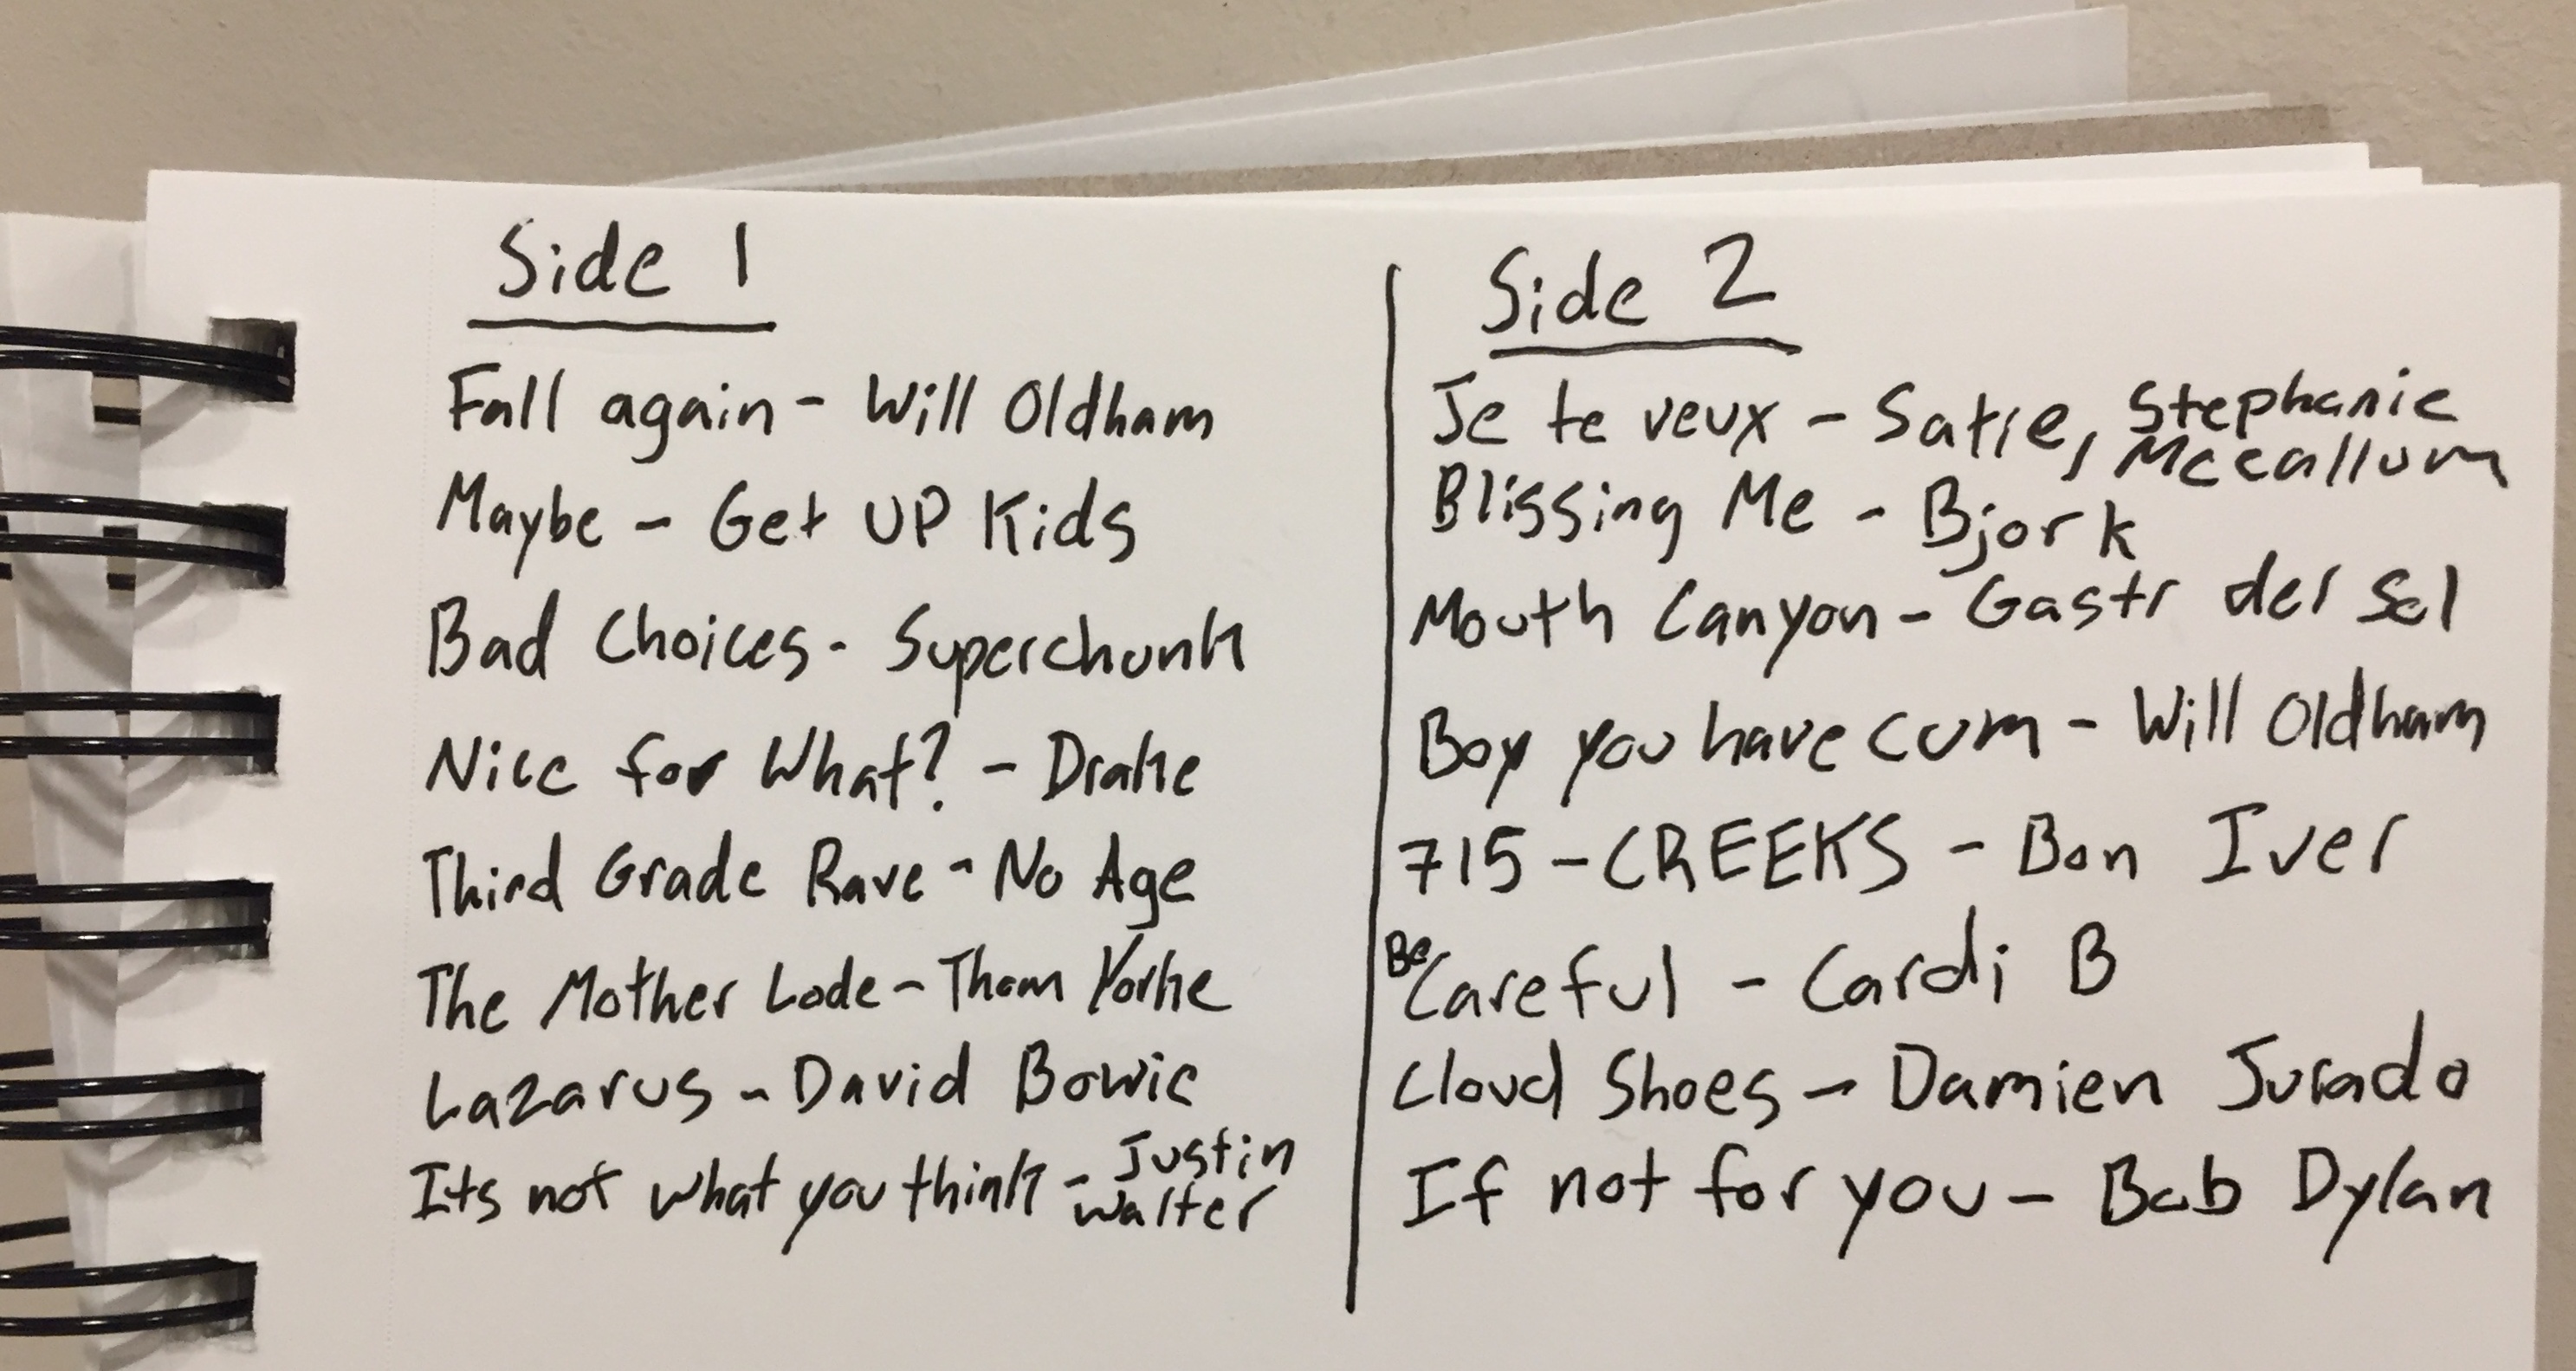 Side 1
Fall again - Will Oldham
Maybe - Get UP Kids
Bad Choices - Superchunk
Nice for What? - Drake
Third Grade Rave - No Age
The Mother Lode - Thom Yorke
Lazarus - David Bowie
Its not what you think - Justin
Walter
Side 2
Je te veux - Satie, Stephanie
Mccallum
Blissing Me - Bjork
Mouth Canyon - Gastr del Sol
Boy you have cum - Will Oldham
715 - CREEKS - Bon Iver
Be Careful - Cardi B
Cloud Shoes - Damien Jurado
If not for you - Bob Dylan